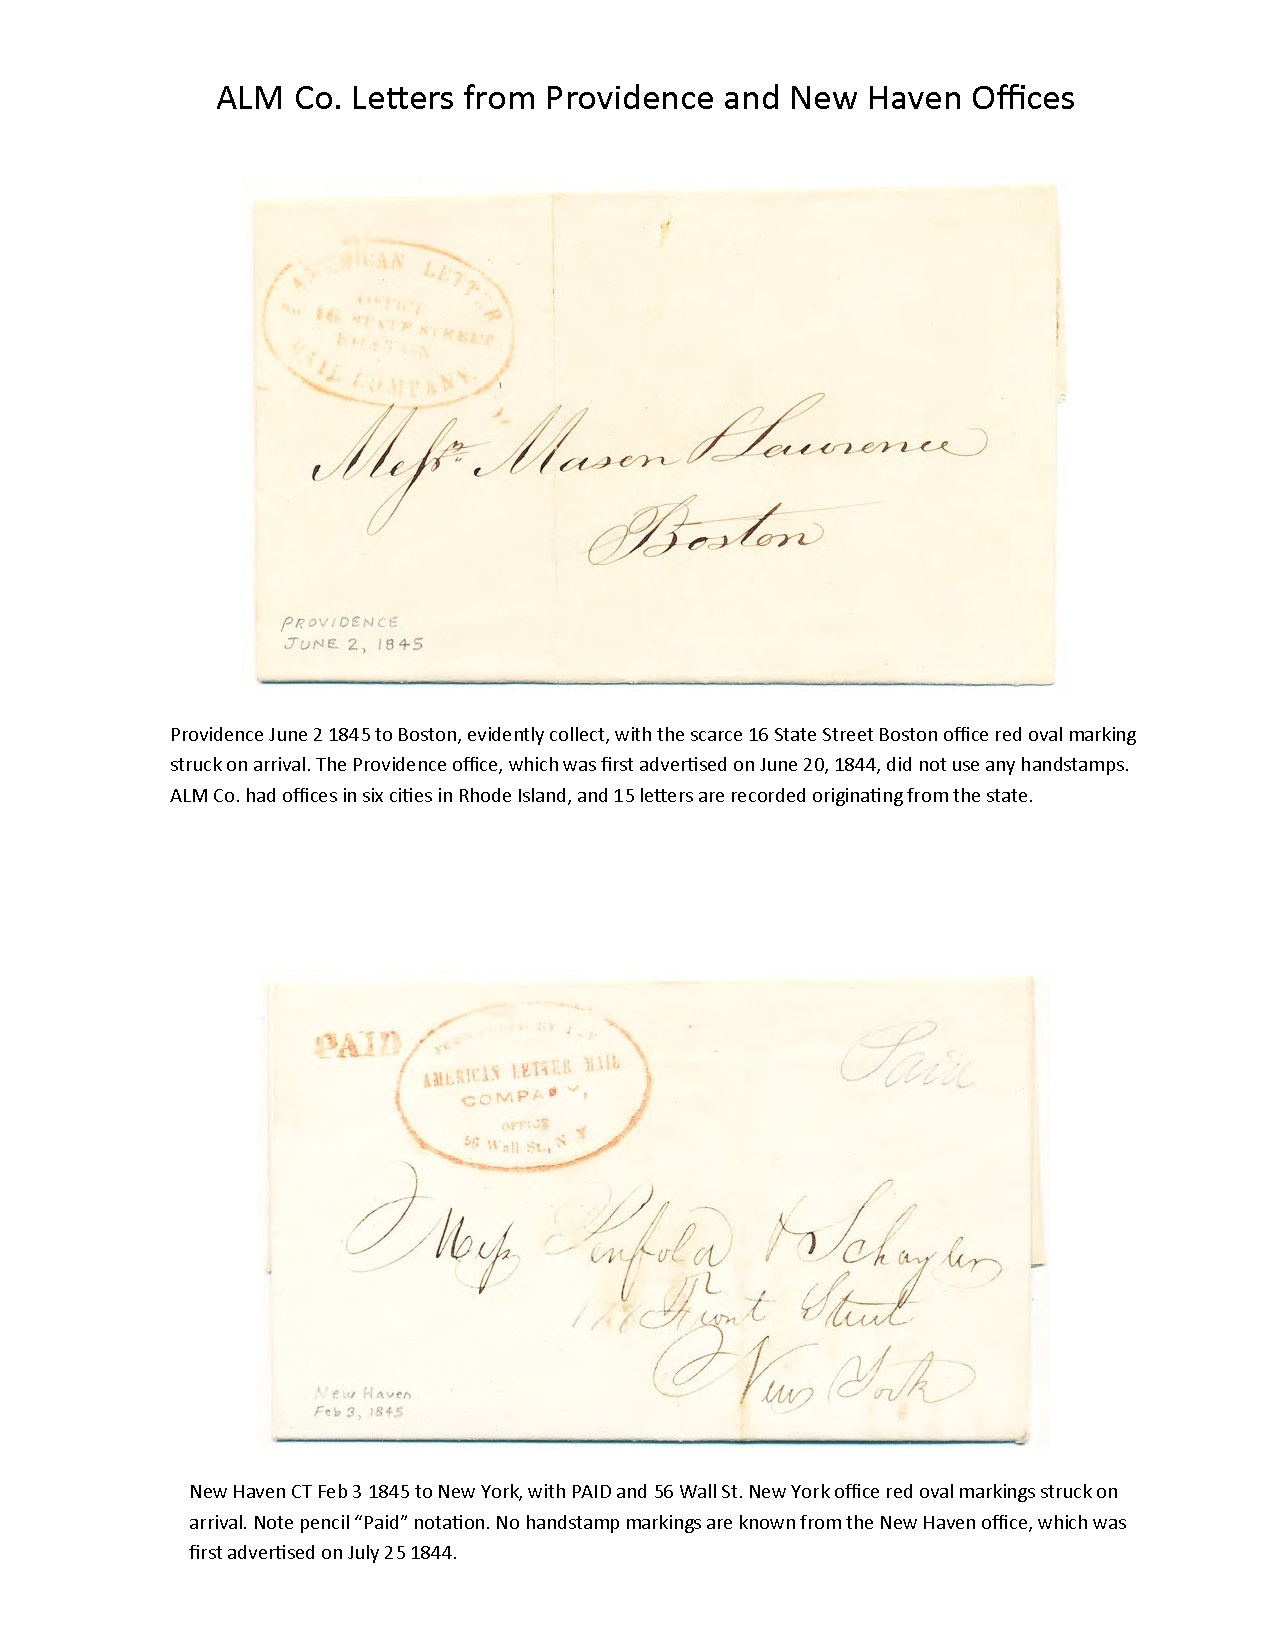 ALM Co. Letters from Providence and New Haven Offices
AMERICAN LETTER
OFFICE
16 STATE STREET
BOSTON
MAIL COMPANY.
Messrs Mason & Lawrence
Boston
PROVIDENCE
JUNE 2, 1845
Providence June 2 1845 to Boston, evidently collect, with the scarce 16 State Street Boston office red oval marking
struck on arrival. The Providence office, which was first advertised on June 20, 1844, did not use any handstamps.
ALM Co. had offices in six cities in Rhode Island, and 15 letters are recorded originating from the state.
PAID
FORWARDED BY THE
AMERICAN LETTER MAIL
COMPANY,
OFFICE
56 Wall St., N Y
Paid
Mess Penfold & Schuyler
Front Street
New York
New Haven
Feb 3, 1845
New Haven CT Feb 3 1845 to New York, with PAID and 56 Wall St. New York office red oval markings struck on
arrival. Note pencil “Paid” notation. No handstamp markings are known from the New Haven office, which was
first advertised on July 25 1844.